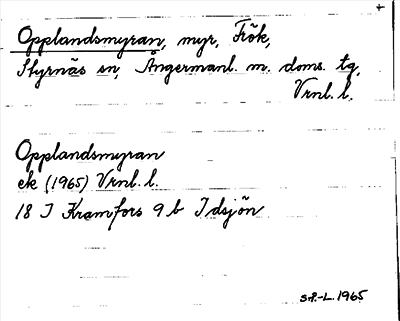 +
Opplandsmyran, myr, Frök,
Styrnäs sn, Ångermanl. m. doms. tg,
Vrnl. l.
Opplandsmyran
ek (1965) Vrnl. l.
18 I Kramfors 9 b Idsjön
S.P.-L. 1965